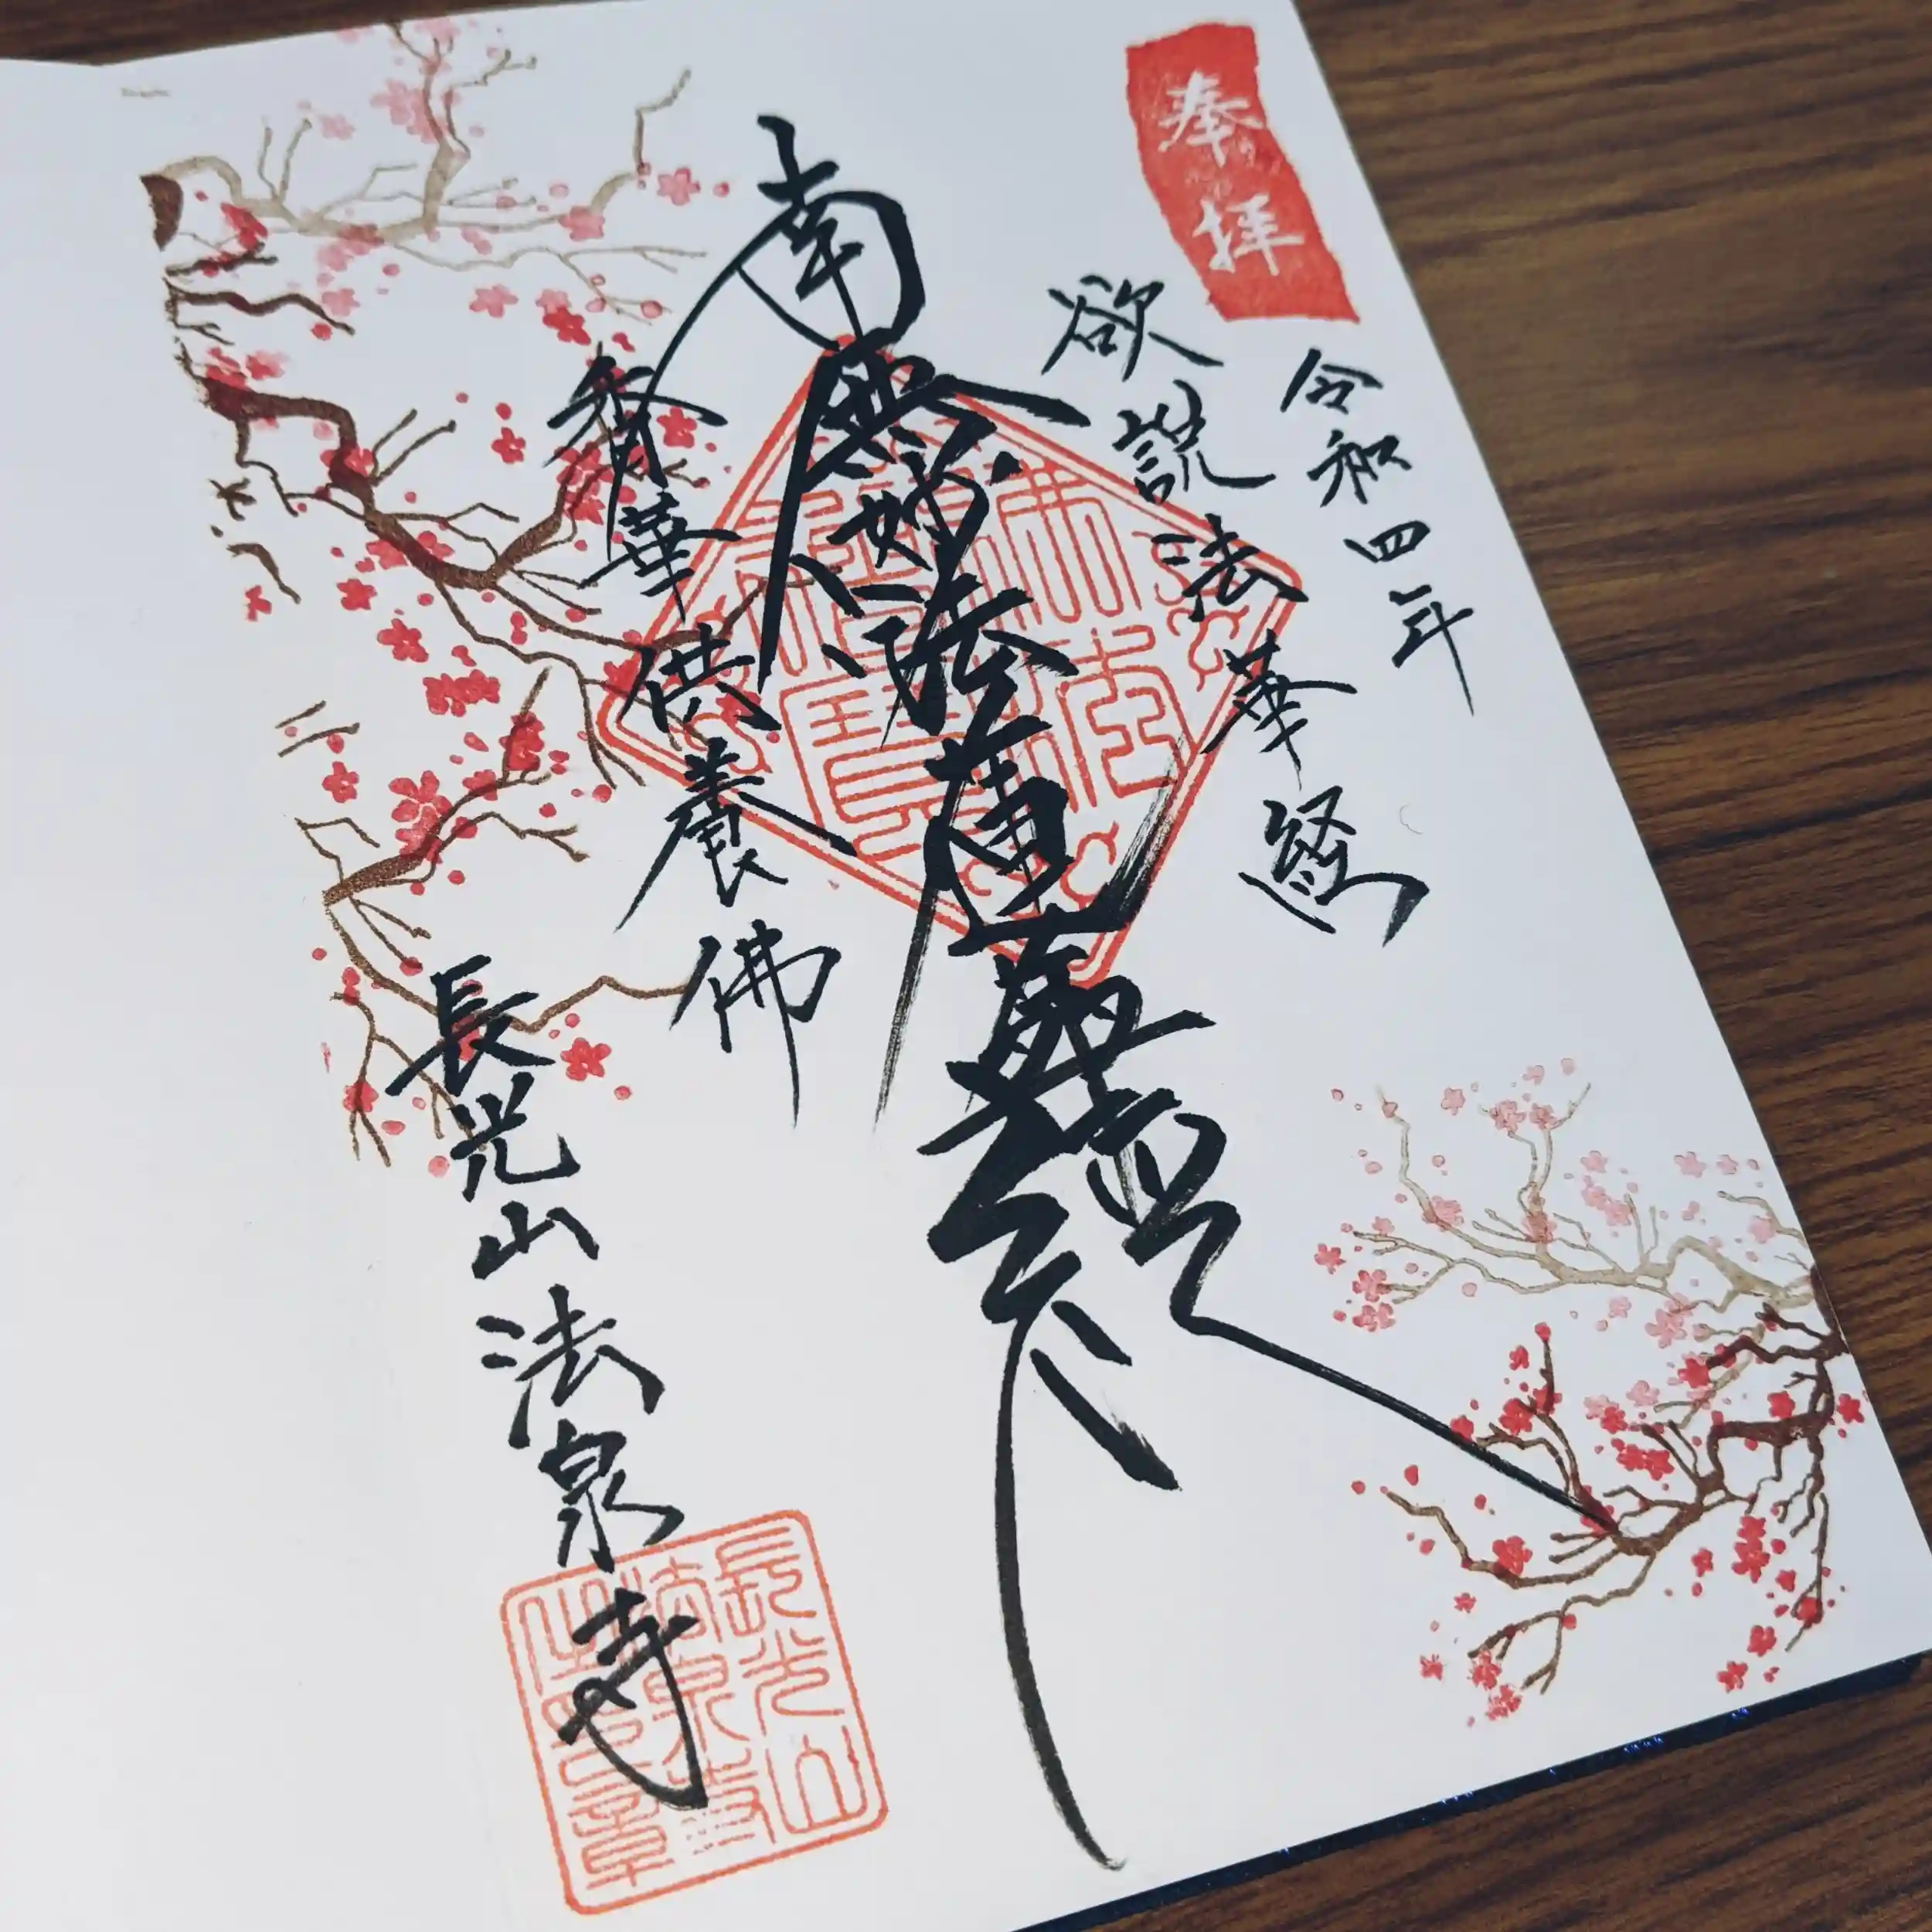 奉拝
令和四年
欲說法華經
南無妙法蓮華經
香華供養佛
長光山法泉寺
長光山
法泉寺
之印章